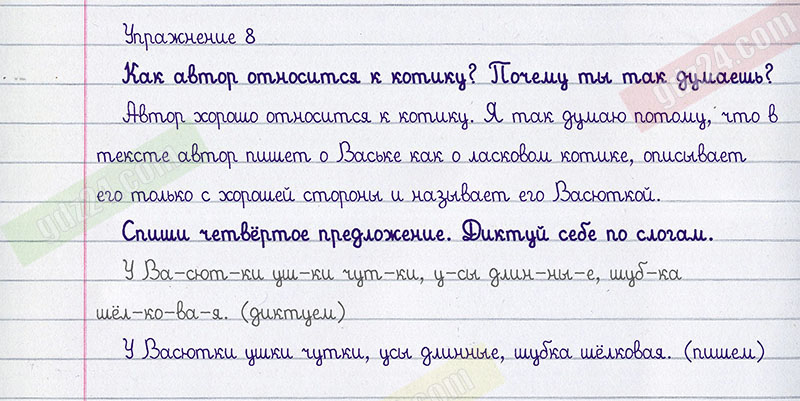 Упражнение 8
Как автор относится к котику? Почему ты так думаешь?
Автор хорошо относится к котику. Я так думаю потому, что в
тексте автор пишет о Ваське как о ласковом котике, описывает
его только с хорошей стороны и называет его Васюткой.
Спиши четвёртое предложение. Диктуй себе по слогам.
У Ва-сют-ки уш-ки чут-ки, у-сы длин-ны-е, шуб-ка
шёл-ко-ва-я. (диктуем)
У Васютки ушки чутки, усы длинные, шубка шёлковая. (пишем)
gdz24.com
gdz24.com